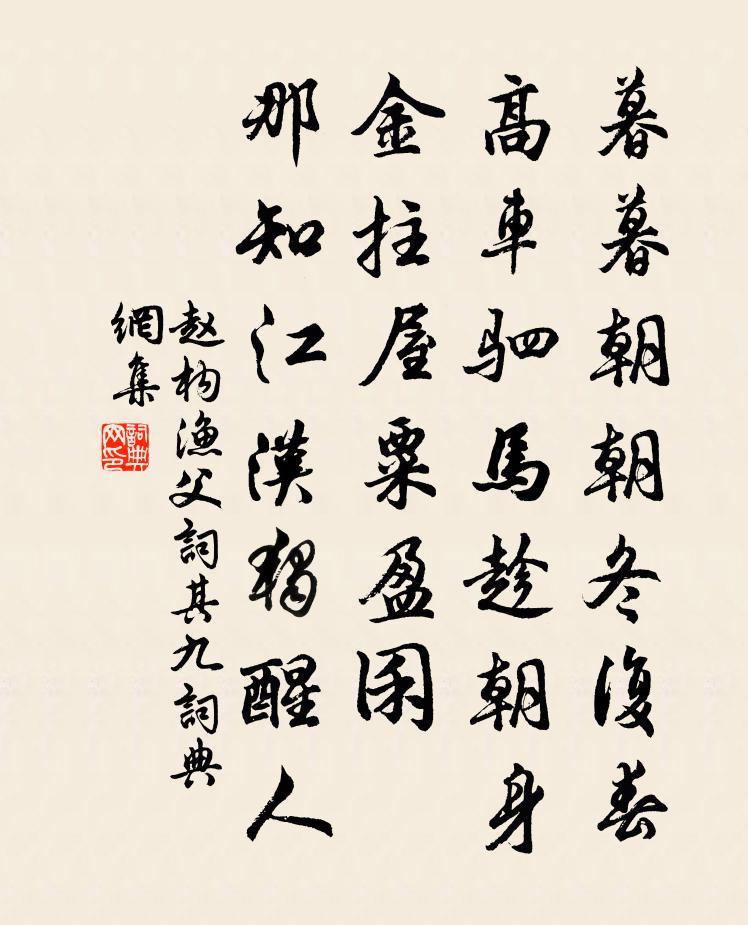 暮暮朝朝冬復春
高車駟馬趁朝身
金拄屋粟盈囷
那知江漢獨醒人
赵构漁父詞其九詞典
網集
詞典
网印